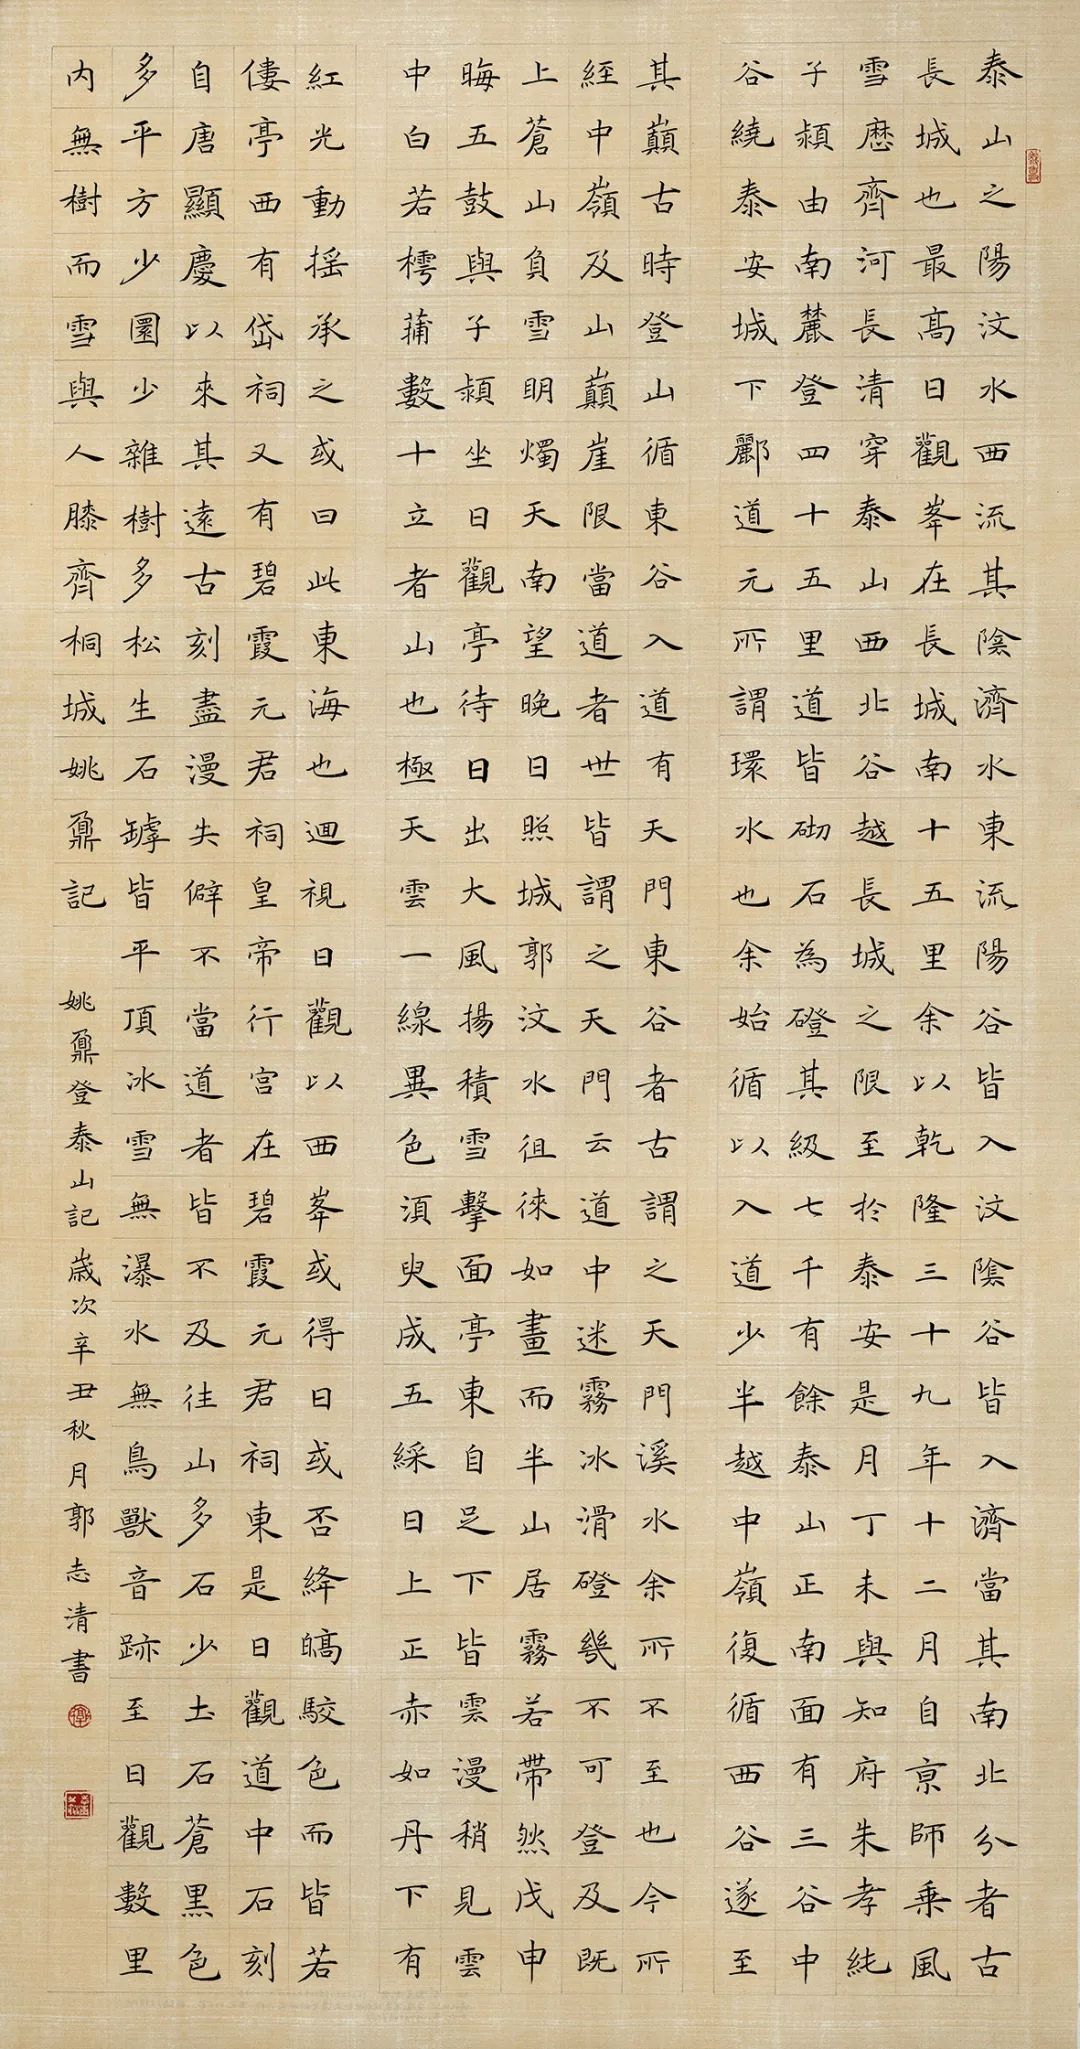 泰山之陽汶水西流其陰濟水東流陽谷皆入汶陰谷皆入濟當其南北分者古
長城也最高日觀峯在長城南十五里余以乾隆三十九年十二月自京師乘風
雪歷齊河長清穿泰山西北谷越長城之限至於泰安是月丁未與知府朱孝純
子潁由南麓登四十五里道皆砌石為磴其級七千有餘泰山正南面有三谷中
谷繞泰安城下酈道元所謂環水也余始循以入道少半越中嶺復循西谷遂至
其巔古時登山循東谷入道有天門東谷者古謂之天門溪水余所不至也今所
經中嶺及山巔崖限當道者世皆謂之天門云道中迷霧冰滑磴幾不可登及既
上蒼山負雪明燭天南望晚日照城郭汶水徂徠如畫而半山居霧若帶然戊申
晦五鼓與子潁坐日觀亭待日出大風揚積雪擊面亭東自足下皆雲漫稍見雲
中白若樗蒱數十立者山也極天雲一線異色須臾成五綵日上正赤如丹下有
紅光動搖承之或曰此東海也迴視日觀以西峯或得日或否絳皜駮色而皆若
僂亭西有岱祠又有碧霞元君祠皇帝行宮在碧霞元君祠東是日觀道中石刻
自唐顯慶以來其遠古刻盡漫失僻不當道者皆不及往山多石少土石蒼黑色
多平方少圜少雜樹多松生石罅皆平頂冰雪無瀑水無鳥獸音跡至日觀數里
內無樹而雪與人膝齊桐城姚鼐記
姚鼐登泰山記歲次辛丑秋月郭志清書